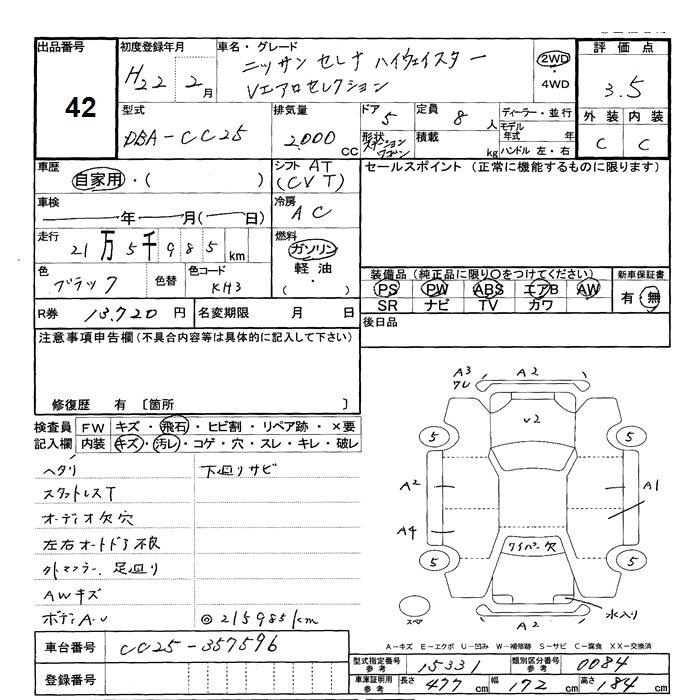 出品番号 42
初度登録年月 H22年 2月
車名・グレード ニッサン セレナ ハイウェイスター
Vエアロセレクション
2WD・4WD
評価点 3.5
外装 内装
C C
型式 DBA-CC25
排気量 2,000 CC
ドア 5
形状 ステーションワゴン
定員 8 人
積載 kg
ディーラー・並行
モデル年式 年
ハンドル 左・右
車歴 自家用・( )
シフト AT
(CVT)
セールスポイント (正常に機能するものに限ります)
車検 年 月( 日)
冷房 AC
走行 21万5千985 km
燃料 ガソリン・軽油・( )
色 ブラック 色替
色コード KH3
装備品(純正品に限り○をつけてください)
PS PW ABS エアB AW
SR ナビ TV カワ
新車保証書
有・無
R券 13,720 円
名変期限 月 日
後日品
注意事項申告欄(不具合内容等は具体的に記入して下さい)
修復歴 有 〔箇所 〕
検査員記入欄
FW キズ・飛石・ヒビ割・リペア跡・×要
内装 キズ・汚レ・コゲ・穴・スレ・キレ・破レ
ヘタリ
下廻りサビ
スタットレスT
オーディオ欠穴
左右オートドア不良
外マフラー、足廻り
AWキズ
ボディA.U
◎215985km
A3
ワレ
A2
U2
5
5
A2
A1
A4
ワイパー欠
5
5
スペア
A2
水入り
車台番号 CC25-357596
登録番号
A-キズ E-エクボ U-凹み W-補修跡 S-サビ C-腐食 XX-交換済
型式指定番号 参考 15331
類別区分番号 参考 0084
車庫証明用 参考 長さ 477 cm 幅 172 cm 高さ 184 cm